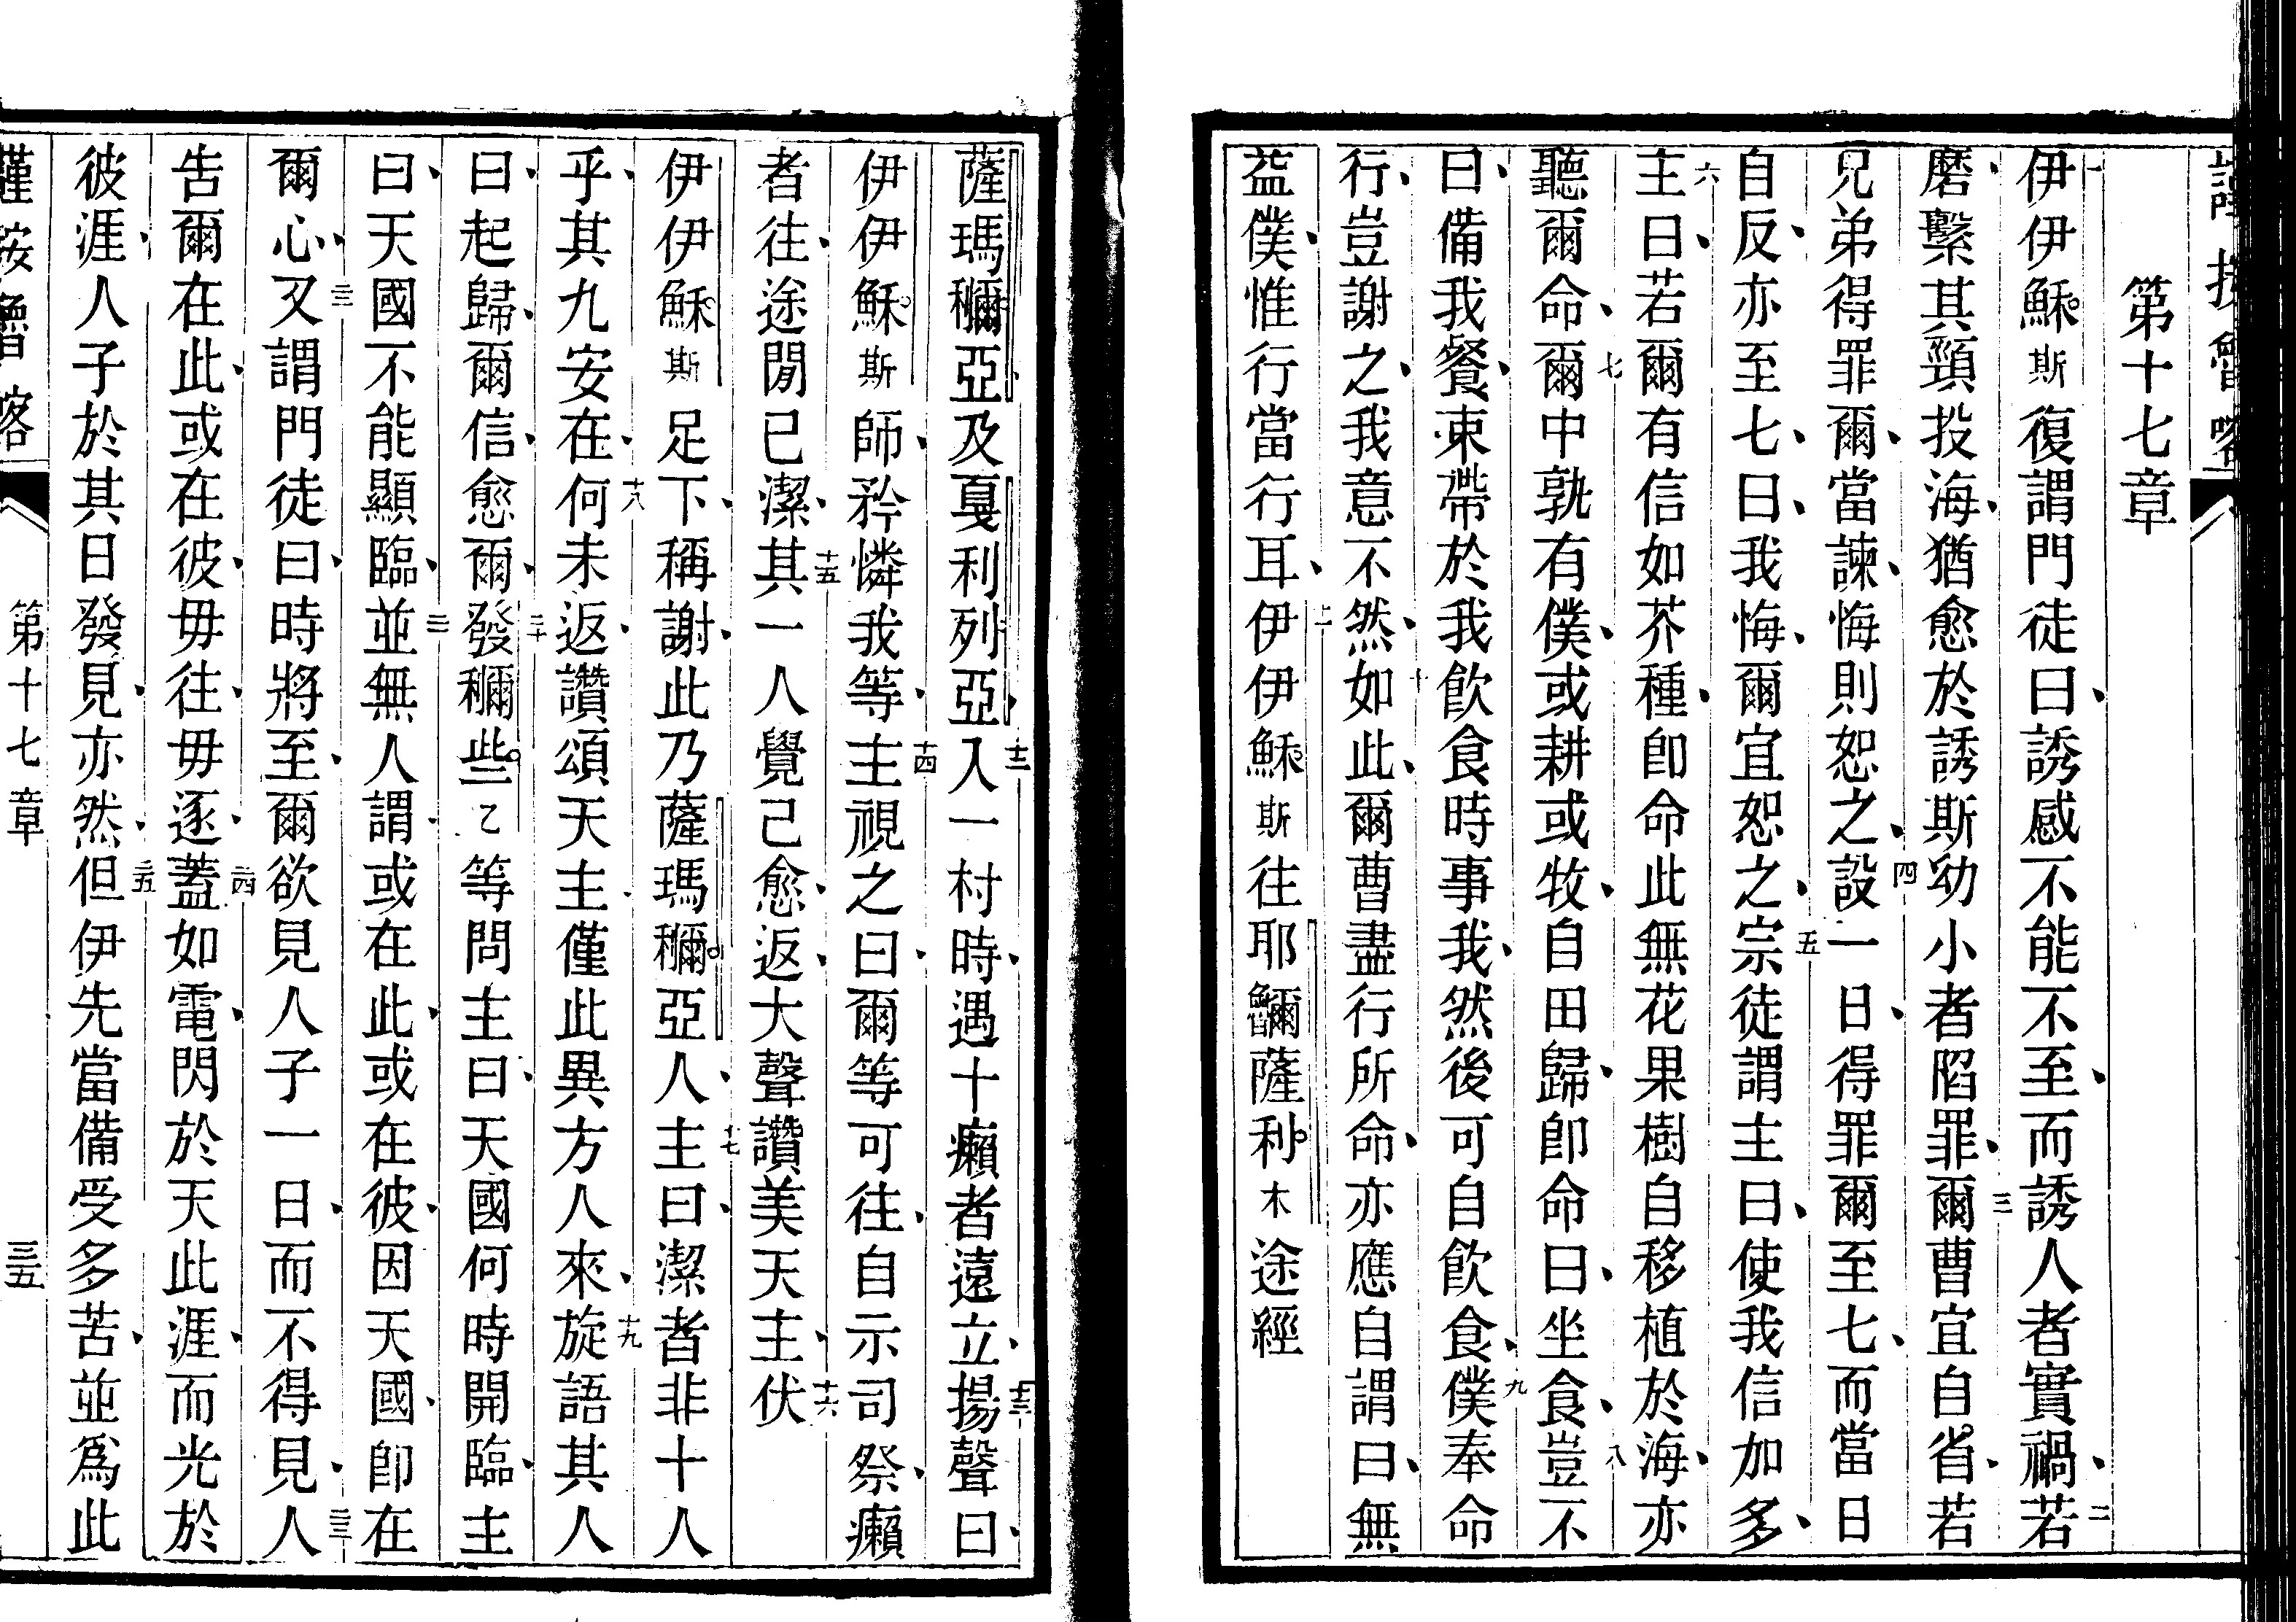 第十七章
一伊伊穌斯復謂門徒曰、誘感不能不至、而誘人者實禍、二若
磨繫其頸投海、猶愈於誘斯幼小者陷罪、三爾曹宜自省、若
兄弟得罪爾、當諫、悔則恕之、四設一日、得罪爾至七、而當日
自反、亦至七、曰、我悔、爾宜恕之、五宗徒謂主曰、使我信加多、
六主曰、若爾有信如芥種、卽命此無花果樹自移植於海、亦
聽爾命、七爾中孰有僕、或耕或牧、自田歸、卽命曰、坐食、八豈不
曰、備我餐、束帶於我飲食時事我、然後可自飲食、九僕奉命
行、豈謝之、我意不然、十如此、爾曹盡行所命、亦應自謂曰、無
益僕、惟行當行耳、十一伊伊穌斯往耶𩦠薩利木途經
薩瑪𥠖亞及戛利列亞、十二入一村時、遇十癩者遠立、十三揚聲曰、
伊伊穌斯師、矜憐我等、十四主視之曰、爾等可往、自示司祭、癩
者往、途閒已潔、十五其一人覺己愈、返、大聲讚美天主、十六伏
伊伊穌斯足下、稱謝、此乃薩瑪𥠖亞人、十七主曰、潔者非十人
乎、其九安在、十八何未返、讚頌天主、僅此異方人來、十九旋語其人
曰、起歸、爾信、愈爾、二十發𥠖些乙等問主曰、天國何時開臨、主
曰、天國不能顯臨、二一並無人謂、或在此、或在彼、因天國、卽在
爾心、二二又謂門徒曰、時將至、爾欲見人子一日、而不得見、二三人
吿爾在此、或在彼、毋往、毋逐、二四蓋如電、閃於天此涯、而光於
彼涯、人子於其日發見、亦然、二五但伊先當備受多苦、並爲此
第十七章
三五